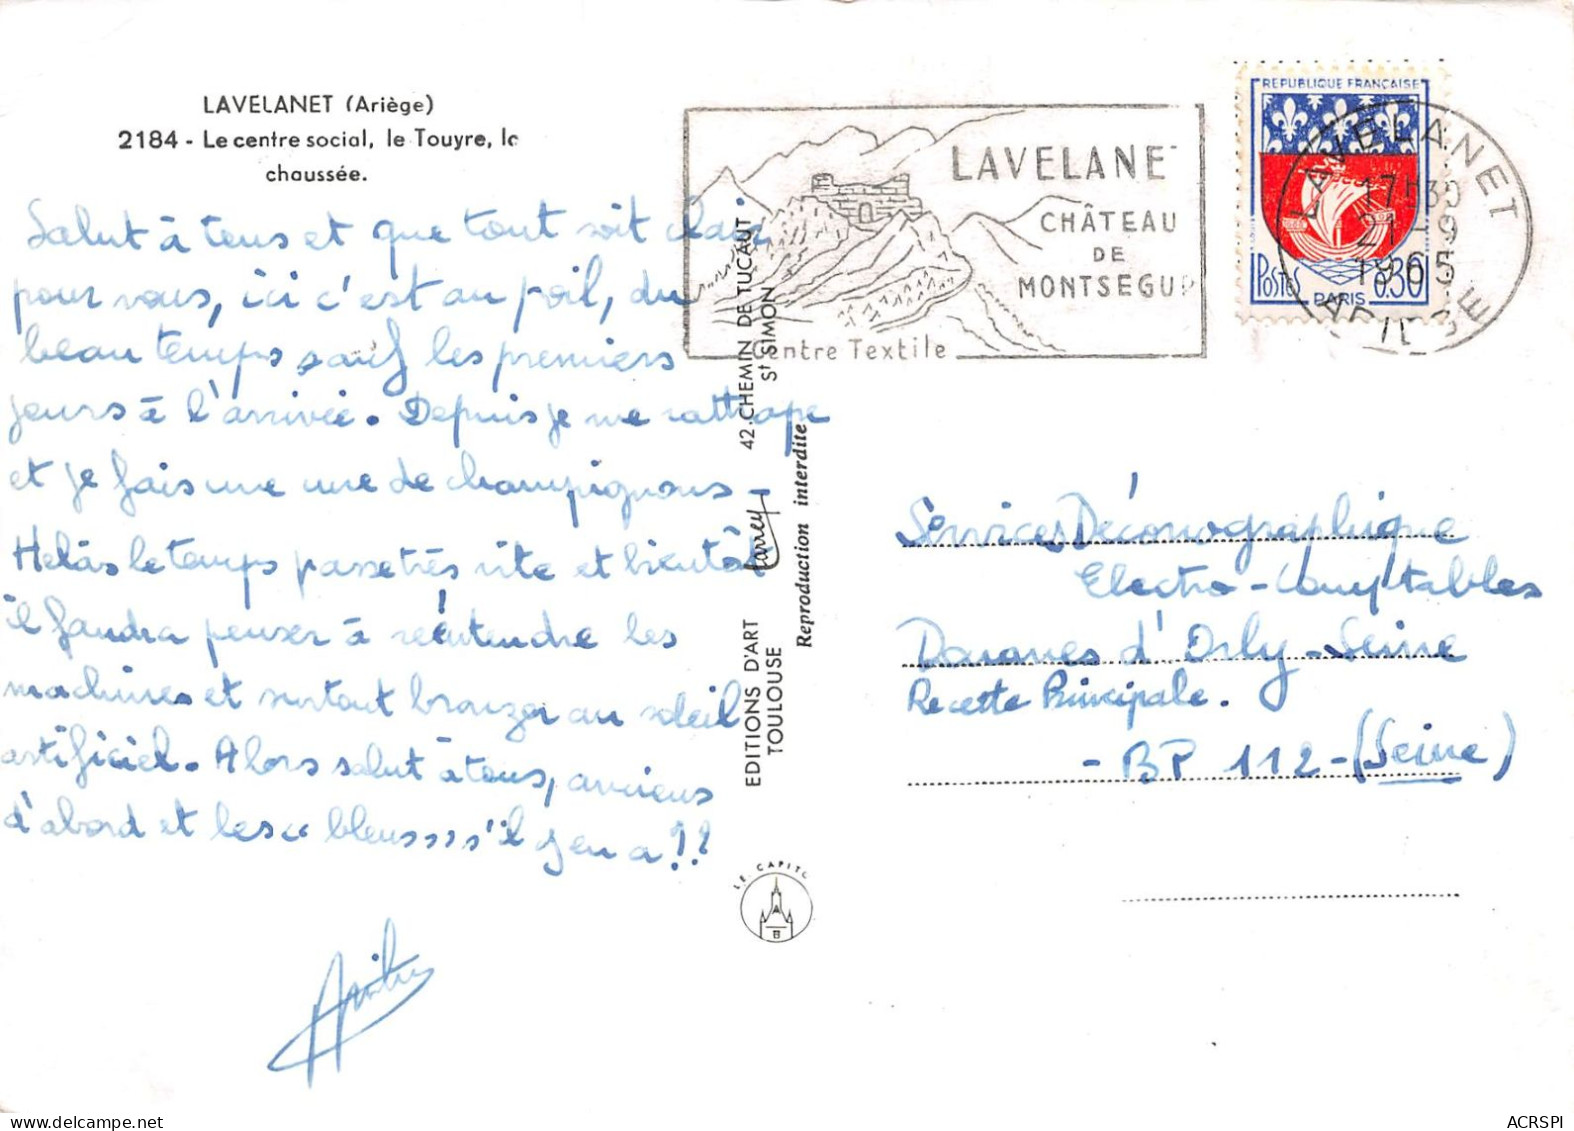 LAVELANET (Ariège)
2184 - Le centre social, le Touyre, la
chaussée.
Salut à tous et que tout soit clair
pour vous, ici c'est au poil, du
beau temps sauf les premiers
jours à l'arrivée. Depuis je me rattrape
et je fais une cure de champignons -
Helàs le temps passe très vite et bientôt
il faudra penser à réentendre les
machines et surtout bronzer au soleil
artificiel. Alors salut à tous, anciens
d'abord et les "bleus" s'il y en a !!
EDITIONS D'ART Larrey 42. CHEMIN DE TUCAUT
TOULOUSE St SIMON
Reproduction interdite
LE CAPITO
B
LAVELANE
CHÂTEAU
DE
MONTSEGUR
Centre Textile
REPUBLIQUE FRANÇAISE
POSTES 0,30
PARIS
LAVELANET
17H30
21-9
1965
ARIEGE
Services Déconographique
Electro-Comptables
Douanes d'Orly-Seine
Recette Principale.
- BP 112 - (Seine)
ACRSPI